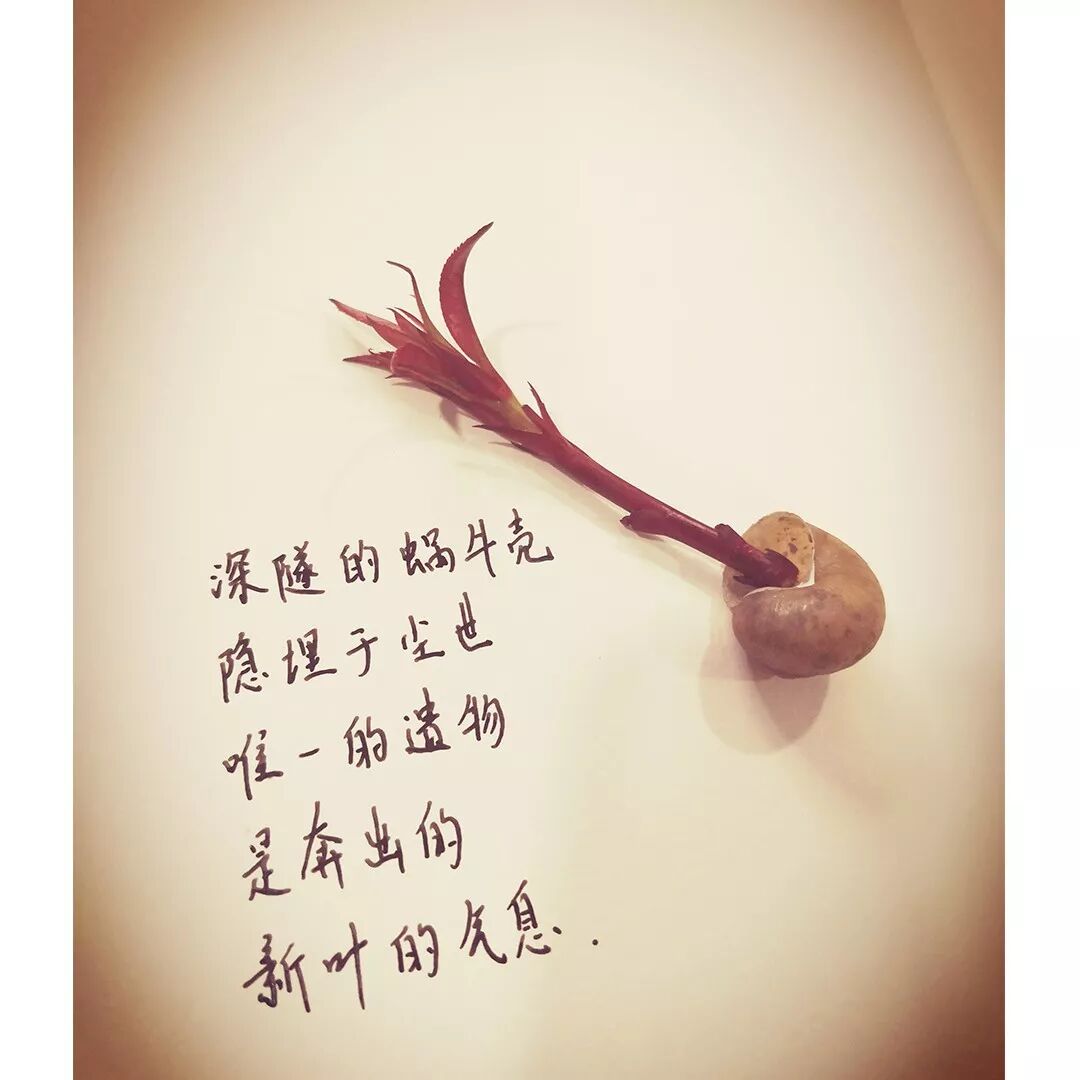 深隧的蜗牛壳
隐埋于尘世
唯一的遗物
是奔出的
新叶的气息.